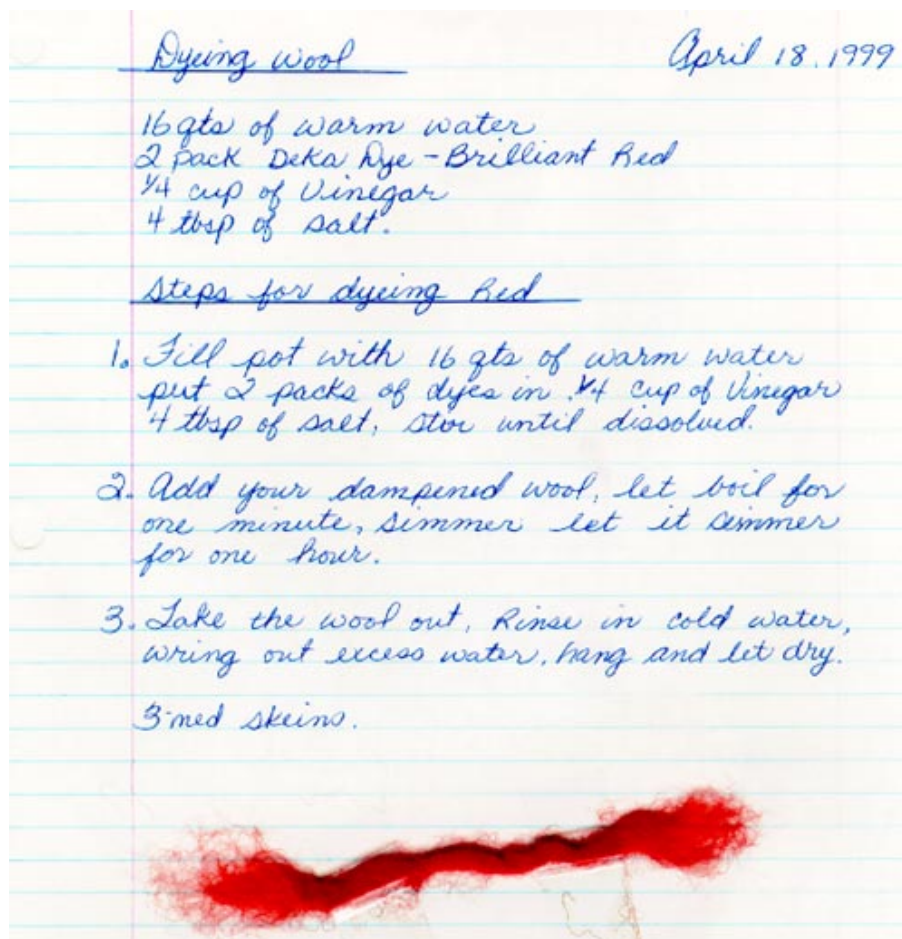 Dyeing wool April 18. 1999
16 qts of warm water
2 pack Deka Dye - Brilliant Red
1/4 cup of Vinegar
4 tbsp of salt.
Steps for dyeing Red
1. Fill pot with 16 qts of warm water
put 2 packs of dyes in. 1/4 cup of Vinegar
4 tbsp of salt, stir until dissolved.
2. Add your dampened wool, let boil for
one minute, simmer let it simmer
for one hour.
3. Take the wool out, Rinse in cold water,
wring out excess water, hang and let dry.
3-med skeins.